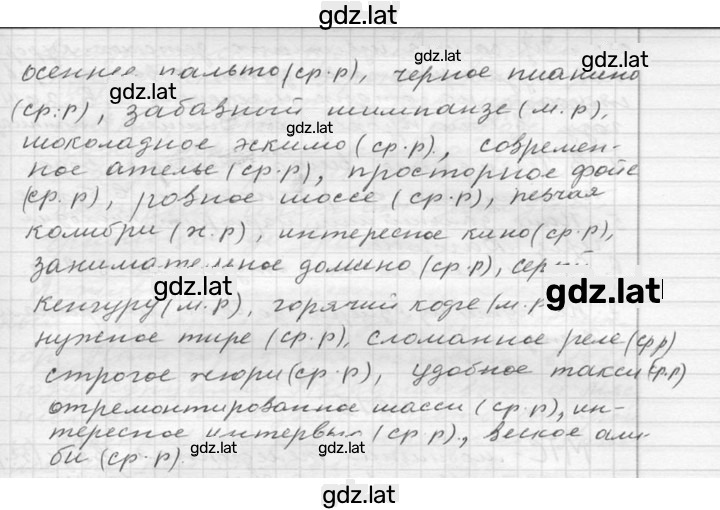 gdz.lat
gdz.lat
осеннее пальто (ср.р), черное пианино
gdz.lat
(ср.р), забавный шимпанзе (м.р),
gdz.lat
шоколадное эскимо (ср.р), современ-
ное ателье (ср.р), просторное фойе
(ср.р), ровное шоссе (ср.р), певчая
колибри (ж.р), интересное кино (ср.р),
занимательное домино (ср.р),
gdz.lat
gdz.lat
кенгуру (м.р), горячий кофе (м.р
нужное тире (ср.р), сломанное реле (ср.р)
строгое жюри (ср.р), удобное такси (ср.р)
отремонтированное шасси (ср.р), ин-
тересное интервью (ср.р), веское али-
би (ср.р).
gdz.lat
gdz.lat
gdz.lat